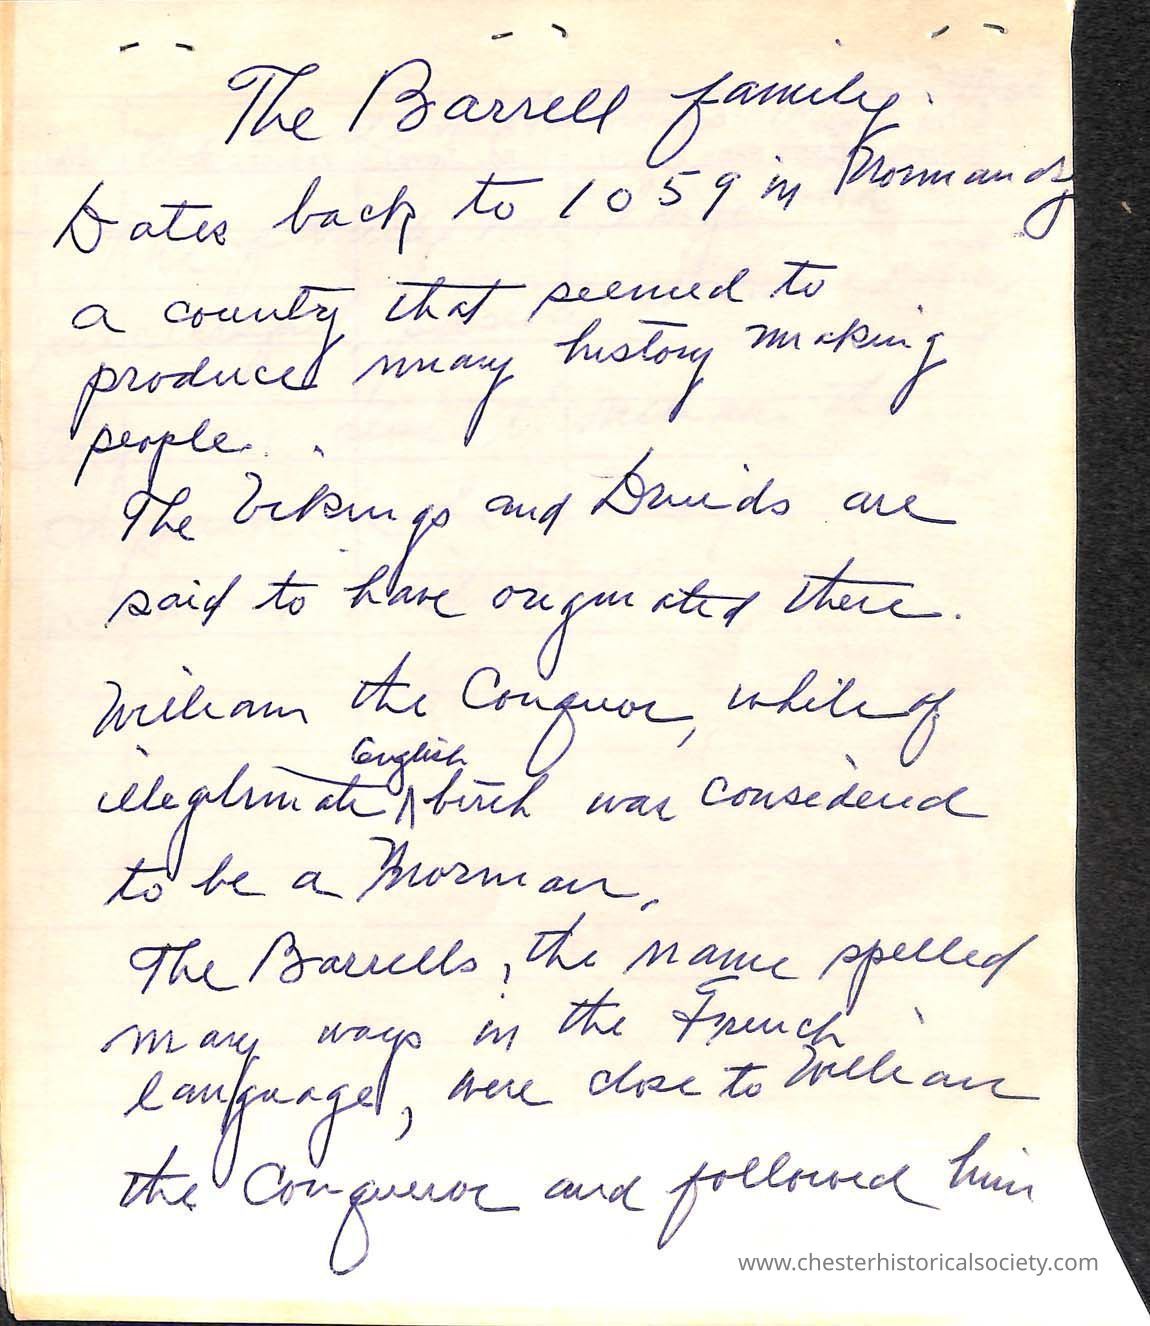 The Barrell family.
Dates back to 1059 in Normandy
a county that seemed to
produce many history making
people.
The Vikings and Druids are
said to have originated there.
William the Conquor, while of
English
illegitimate ^ birth was considered
to be a Norman.
The Barrells, the name spelled
many ways in the French
language, were close to William
the Conqueror and followed him
www.chesterhistoricalsociety.com